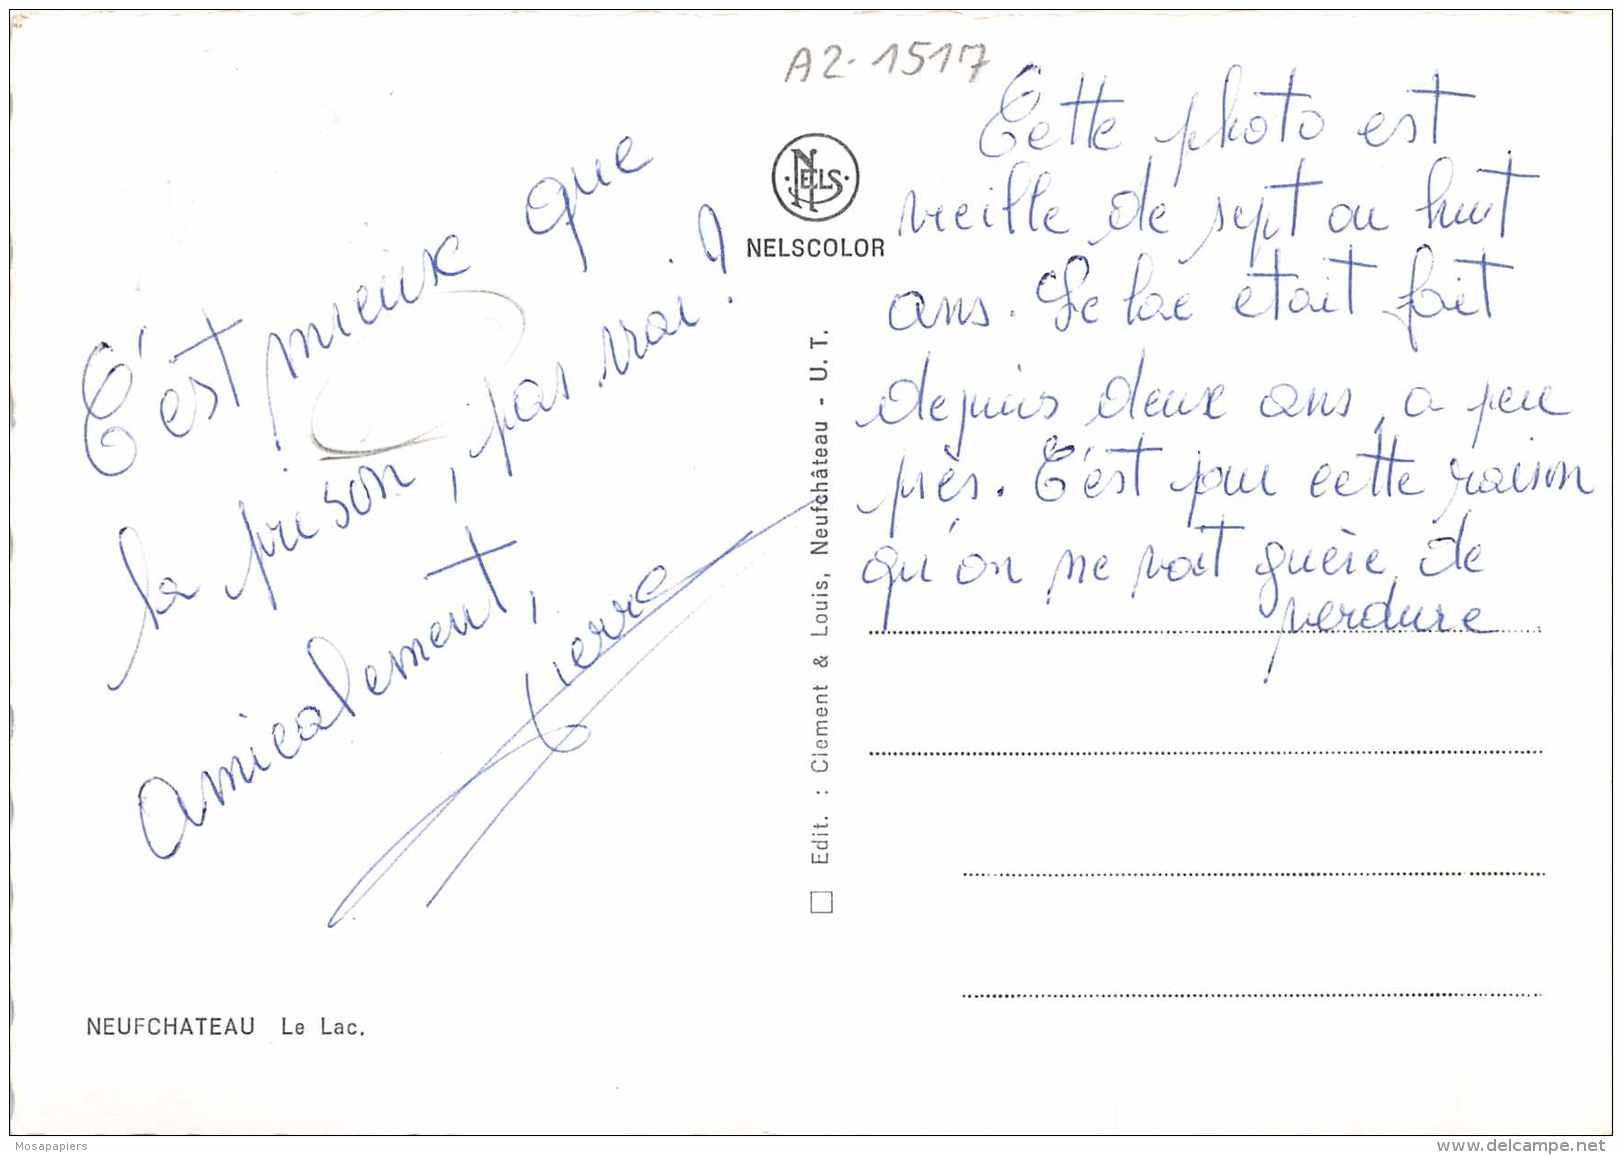 A2-1517
C'est mieux que
la prison, pas vrai?
amicalement,
Pierre
NEUFCHATEAU Le Lac.
NELS
NELSCOLOR
Edit. : Clement & Louis, Neufchâteau - U. T.
Cette photo est
vieille de sept ou huit
ans. Le lac était fait
depuis deux ans, a peu
près. C'est pour cette raison
qu'on ne voit guère de
verdure
Mosapapiers
www.delcampe.net